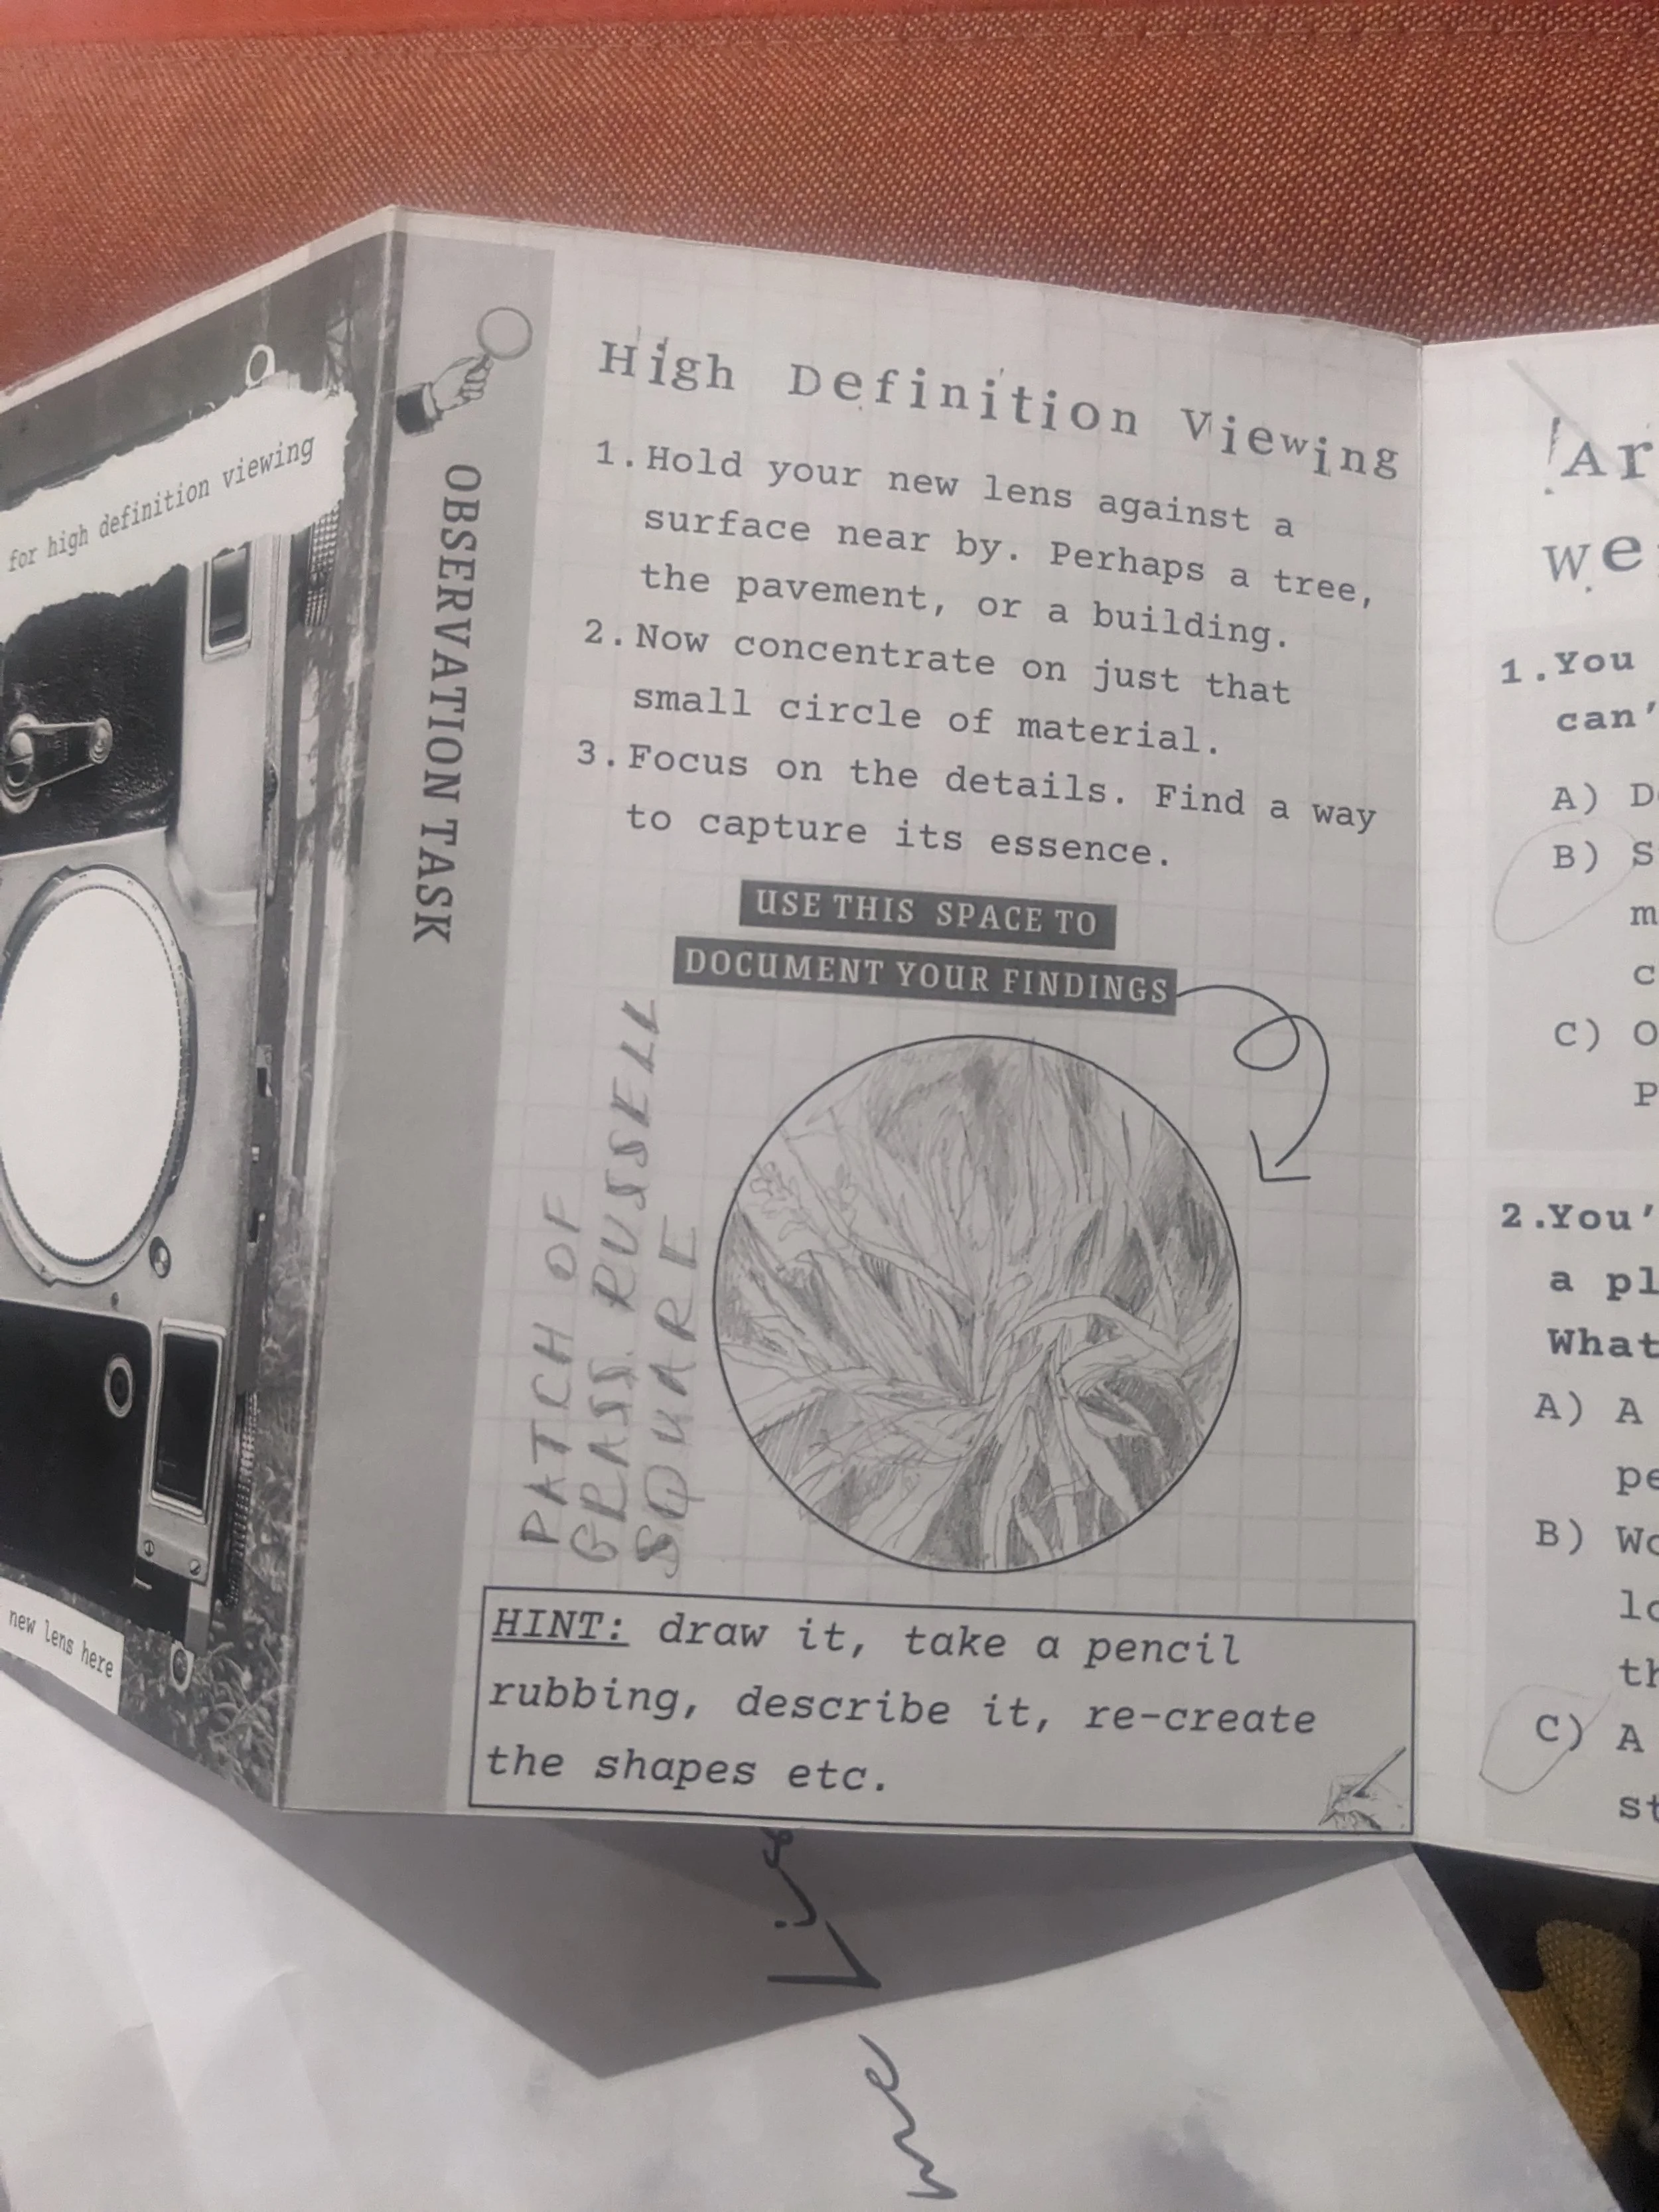 for high definition viewing
new lens here
OBSERVATION TASK
High Definition Viewing
1. Hold your new lens against a
surface near by. Perhaps a tree,
the pavement, or a building.
2. Now concentrate on just that
small circle of material.
3. Focus on the details. Find a way
to capture its essence.
USE THIS SPACE TO
DOCUMENT YOUR FINDINGS
PATCH OF
GRASS RUSSELL
SQUARE
HINT: draw it, take a pencil
rubbing, describe it, re-create
the shapes etc.
1. You
can'
A)
B)
C)
2. You'
a
What
A) A
B)
C) A